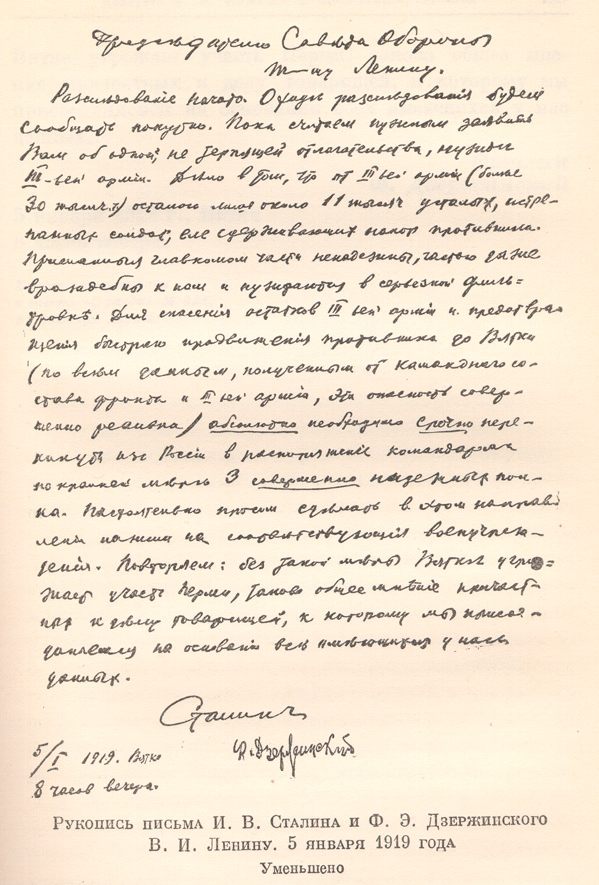 Председателю Совета Обороны
т-щу Ленину.
Разследование начато. О ходе разследования будем
сообщать попутно. Пока считаем нужным заявить
Вам об одной, не терпящей отлагательства, нужде
III-ьей армiи. Дело в том, что от III ьей армiи (более
30 тысяч) осталось лишь около 11 тысяч усталых, истре-
панных солдат, еле сдерживающих напор противника.
Присланныя главкомом части ненадежны, частью даже
враждебны к нам и нуждаются в серьезной филь-
тровке. Для спасенiя остатков III ьей армiи и предотвра-
щенiя быстраго продвиженiя противника до Вятки
(по всем данным, полученным от командного со-
става фронта и III ьей армiи, эта опасность совер-
шенно реальна) абсолютно необходимо срочно пере-
кинуть из Россiи в распоряженiе командарма
по крайней мере 3 совершенно надежных пол-
ка. Настоятельно просим сделать в этом направ-
ленiи нажим на соответствующiя военучреж-
денiя. Повторяем: без такой меры Вятке угро-
жает участь Перми, таково общее мненiе причаст-
ных к делу товарищей, к которому мы присое-
диняемся на основанiи всех имеющихся у нас
данных.
Сталин
Ф. Дзержинскiй
5/I 1919. Вятка
8 часов вечера.
Рукопись письма И. В. Сталина и Ф. Э. Дзержинского
В. И. Ленину. 5 января 1919 года
Уменьшено